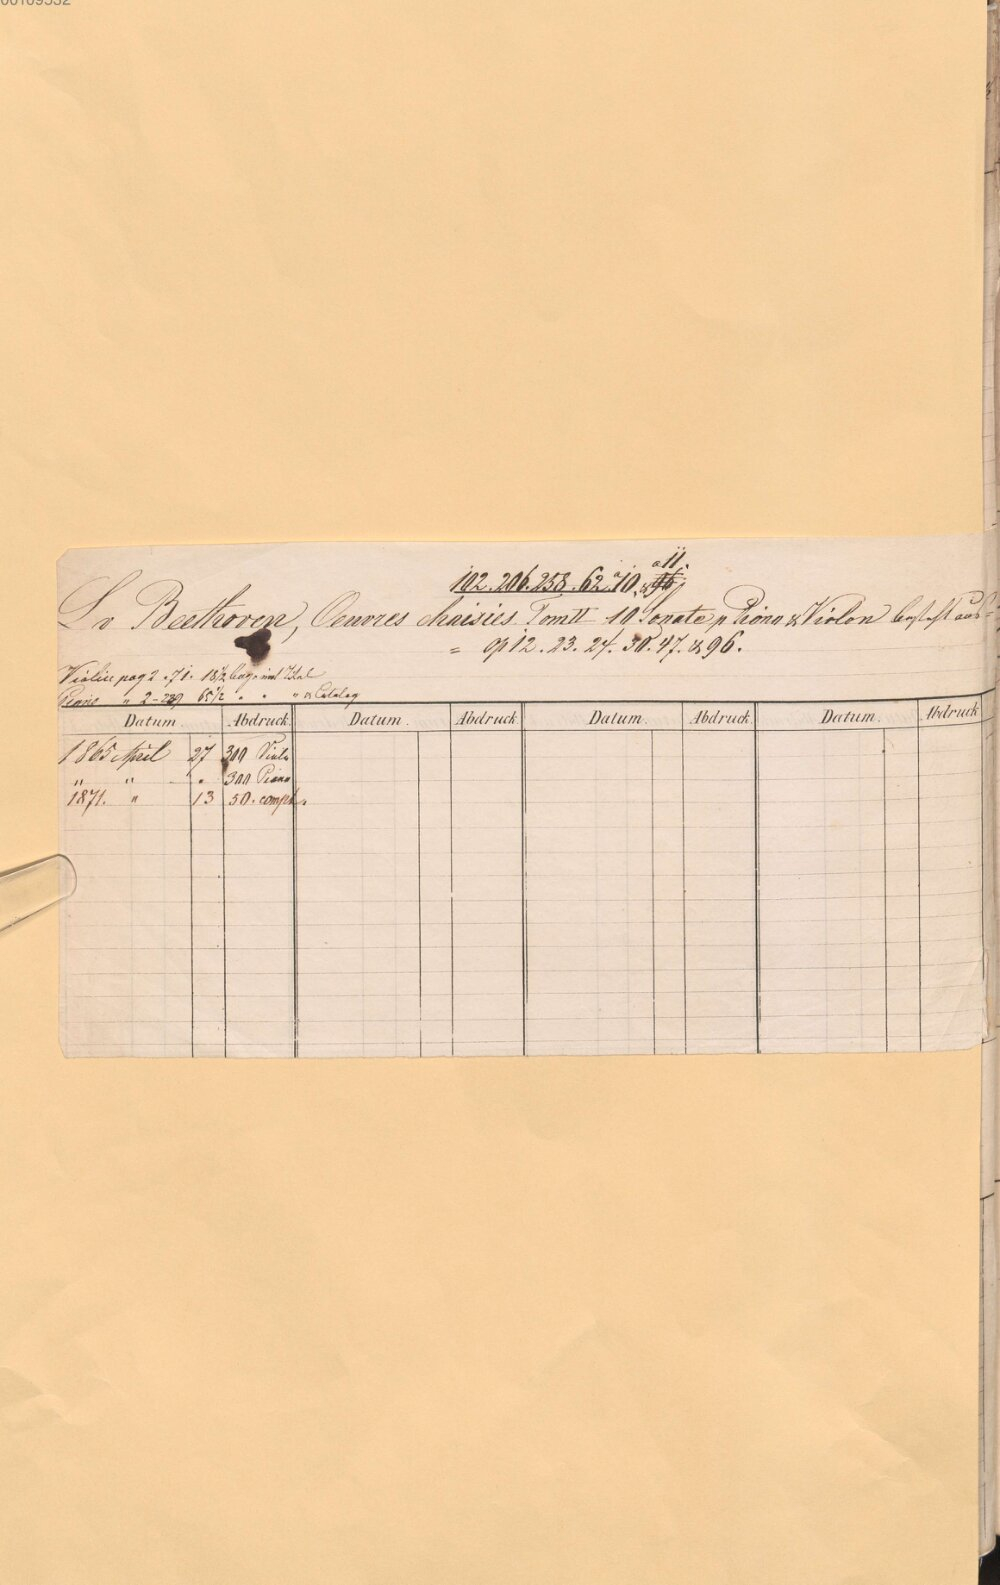 00109532
a 11
102. 206. 258. 62. 70. &
L v Beethoven, Oeuvres choisies. Tom II 10 Sonate p Piano & Violon besteht aus
= op 12. 23. 24. 30. 47. & 96.
Violine pag 2-71. 18½ bog. mit Titel
Piano " 2-239 65½ " " " & Catalog
Datum. Abdruck Datum. Abdruck Datum. Abdruck Datum. Abdruck
1865 April 27 300 Violin
" " " 300 Piano
1871. " 13 50. complt.